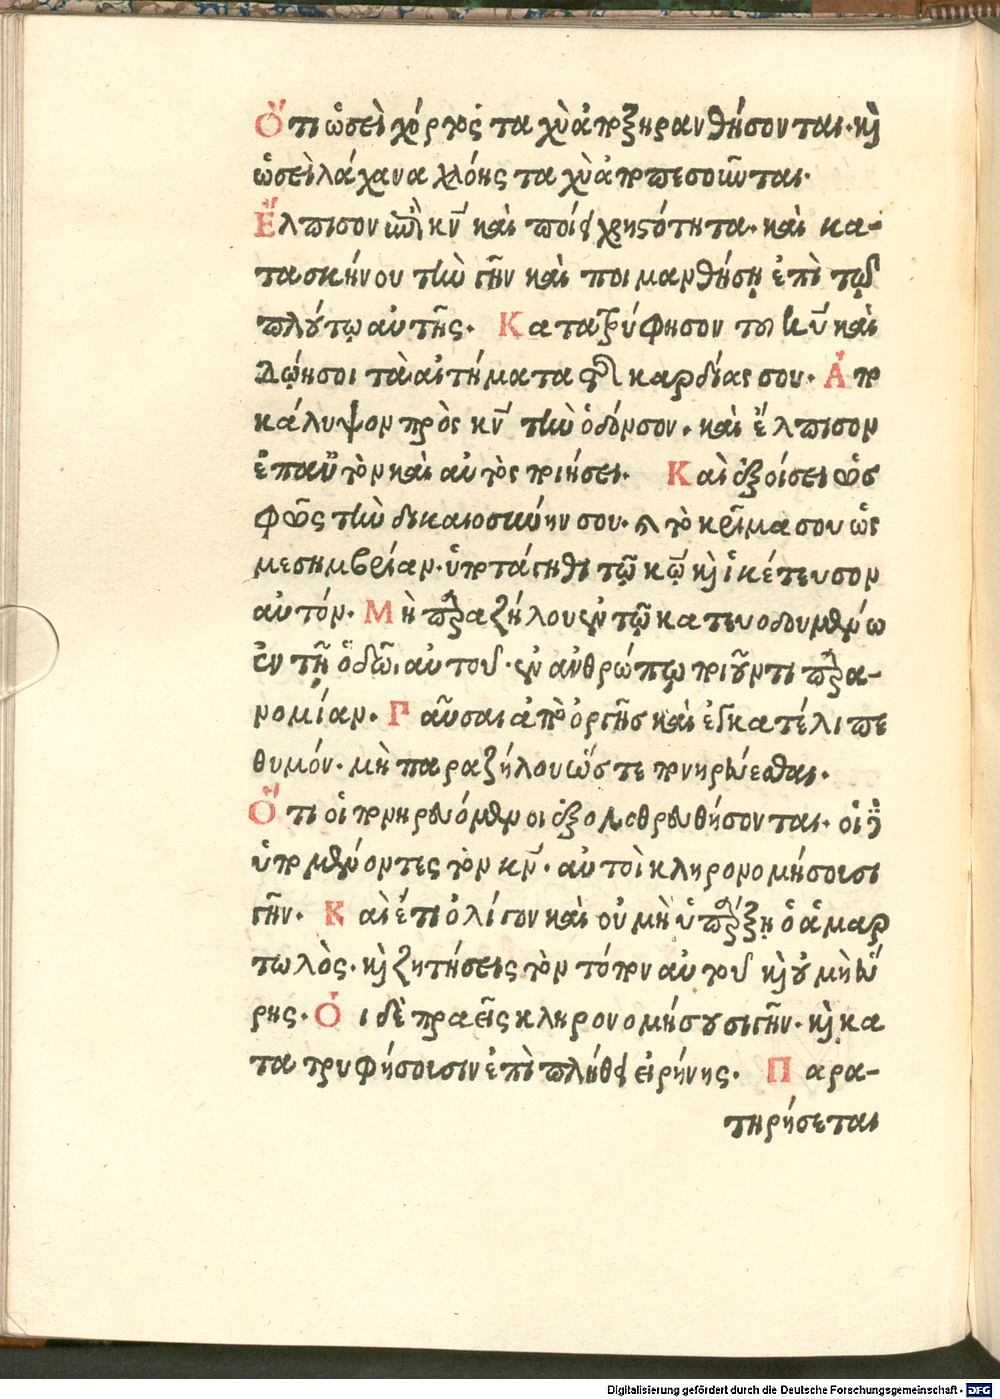 Ὅτι ὡσεὶ χόρτος ταχὺ ἀποξηρανθήσονται· καὶ
ὡσεὶ λάχανα χλόης ταχὺ ἀποπεσοῦνται·
Ἔλπισον ἐπὶ κν̄ καὶ ποίει χρηςότητα· καὶ κα-
τασκήνου τὴν γῆν καὶ ποιμανθήσῃ ἐπὶ τῷ
πλούτῳ αὐτῆς· Κατατρύφησον τοῦ κῡ καὶ
δώῃσοι τὰ αἰτήματα τῆς καρδίας σου· Ἀπο
κάλυψον πρὸς κν̄ τὴν ὁδόν σου· καὶ ἔλπισον
ἐπαὐτὸν καὶ αὐτὸς ποιήσει· Καὶ ἐξοίσει ὡς
φῶς τὴν δικαιοσύνην σου· καὶ τὸ κρῖμα σου ὡς
μεσημβρίαν· ὑποτάγηθι τῷ κῷ καὶ ἱκέτευσον
αὐτόν· Μὴ παραζήλου ἐν τῷ κατευοδουμένω
ἐν τῇ ὁδῶι αὐτοῦ· ἐν ἀνθρώπῳ ποιοῦντι παρα-
νομίαν· Παῦσαι ἀπὸ ὀργῆς καὶ ἐγκατέλιπε
θυμόν· μὴ παραζήλου ὥστε πονηρεύεσθαι·
Ὅτι οἱ πονηρευόμενοι ἐξολοθρευθήσονται· οἱ δὲ
ὑπομένοντες τὸν κν̄· αὐτοὶ κληρονομήσουσι
γῆν· Καὶ ἔτι ὀλίγον καὶ οὐ μὴ ὑπάρξῃ ὁ ἁμαρ
τωλὸς· καὶ ζητήσεις τὸν τόπον αὐτοῦ καὶ οὐ μὴ εὕ
ρης· Ὁι δὲ πραεῖς κληρονομήσουσι γῆν· καὶ κα
τατρυφήσουσιν ἐπὶ πλήθει εἰρήνης· Παρα-
τηρήσεται
Digitalisierung gefördert durch die Deutsche Forschungsgemeinschaft - DFG